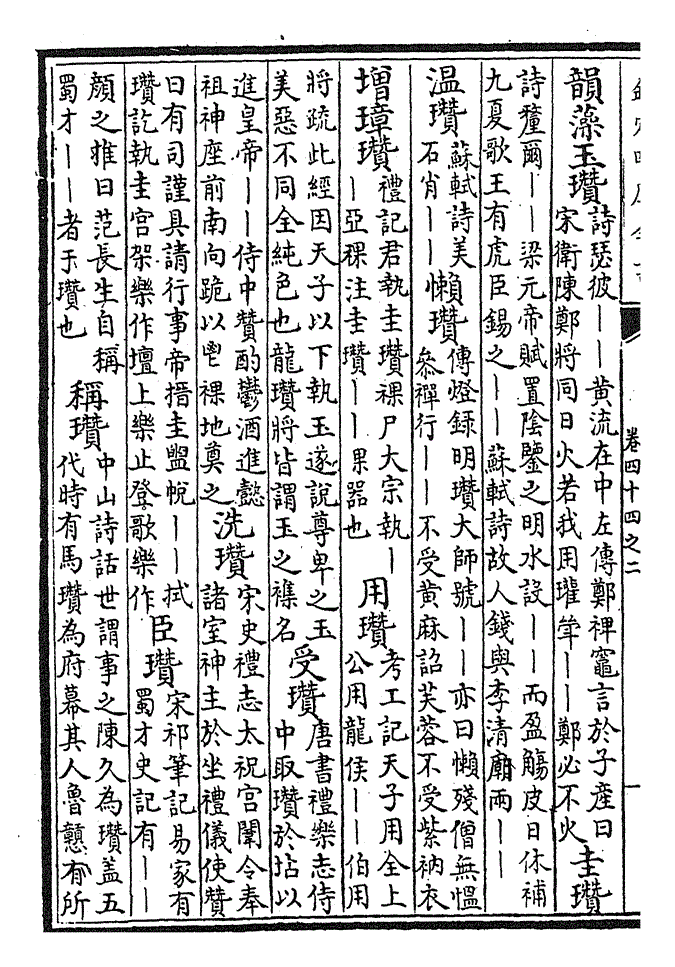 卷四十四之二
韻藻玉瓚詩瑟彼〡〡黄流在中左傳鄭裨竈言於子產曰
宋衛陳鄭將同日火若我用瓘斝〡〡鄭必不火圭瓚
詩釐爾〡〡梁元帝賦置陰鑒之明水設〡〡而盈觴皮日休補
九夏歌王有虎臣錫之〡〡蘇軾詩故人錢與李清廟兩〡〡
温瓚蘇軾詩美
石肖〡〡懶瓚傳燈録明瓚大師號〡〡亦曰懶殘僧無愠
叅禪行〡〡不受黄麻詔芙蓉不受紫衲衣
增璋瓚禮記君執圭瓚祼尸大宗執〡
〡亞祼注圭瓚〡〡祼器也用瓚考工記天子用全上
公用龍侯〡〡伯用
將疏此經因天子以下執玉遂說尊卑之玉
美惡不同全純色也龍瓚將皆謂玉之襍名受瓚唐書禮樂志侍
中取瓚於坫以
進皇帝〡〡侍中贊酌鬱酒進懿
祖神座前南向跪以鬯祼地奠之洗瓚宋史禮志太祝宫闈令奉
諸室神主於坐禮儀使贊
曰有司謹具請行事帝搢圭盥帨〡〡拭
瓚訖執圭宫架樂作壇上樂止登歌樂作臣瓚宋祁筆記易家有
蜀才史記有〡〡
顔之推曰范長生自稱
蜀才〡〡者于瓚也稱瓚中山詩話世謂事之陳久為瓚盖五
代時有馬瓚為府幕其人魯戇有所